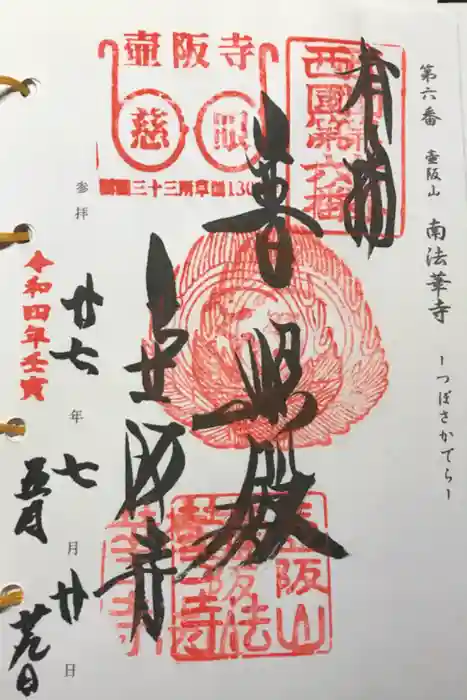 第六番 壺阪山 南法華寺 ーつぼさかでらー
奉拝
西國第六番
普照殿
壷阪寺
慈 眼
三十三所草創130
壺阪寺
参拝 廿七年七月廿日
令和四年壬寅
五月
廿九日
壺阪山